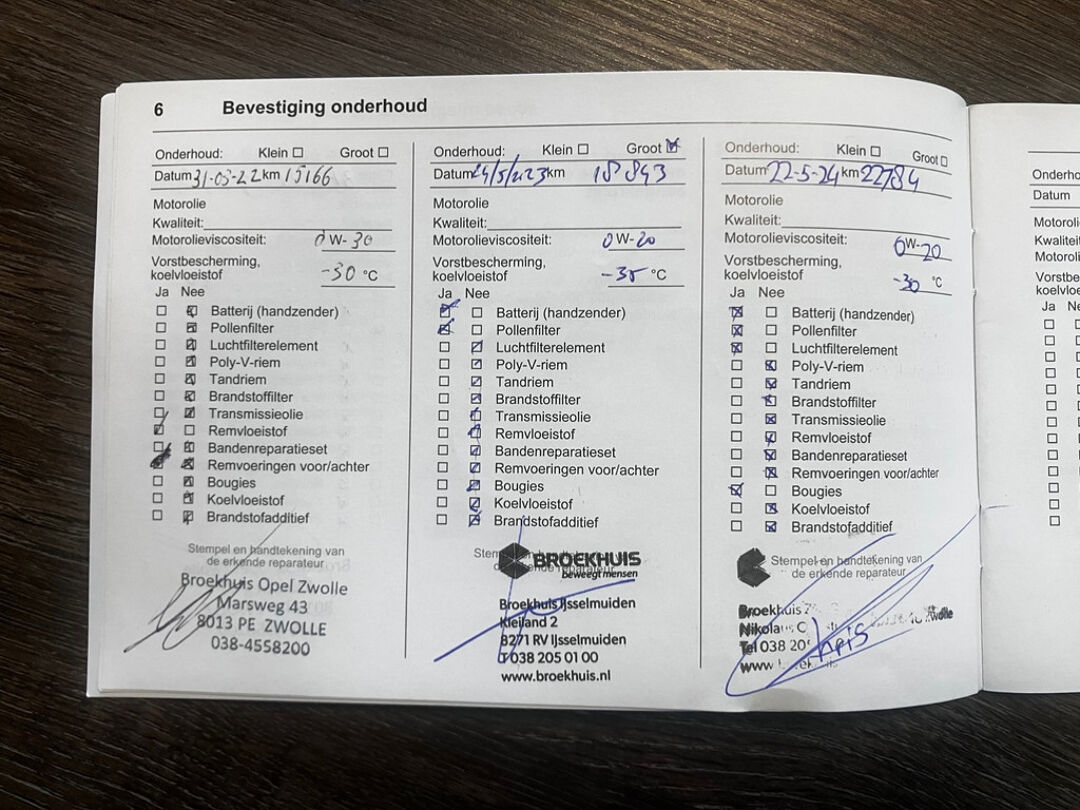 6 Bevestiging onderhoud
Onderhoud: Klein ☐ Groot ☐
Datum 31-03-22 km 15166
Motorolie
Kwaliteit:
Motorolieviscositeit: 0 W-30
Vorstbescherming,
koelvloeistof -30 °C
Ja Nee
☐ ☒ Batterij (handzender)
☐ ☒ Pollenfilter
☐ ☒ Luchtfilterelement
☐ ☒ Poly-V-riem
☐ ☒ Tandriem
☐ ☒ Brandstoffilter
☐ ☒ Transmissieolie
☒ ☐ Remvloeistof
☐ ☒ Bandenreparatieset
☒ ☒ Remvoeringen voor/achter
☐ ☒ Bougies
☐ ☒ Koelvloeistof
☐ ☒ Brandstofadditief
Stempel en handtekening van
de erkende reparateur
Broekhuis Opel Zwolle
Marsweg 43
8013 PE ZWOLLE
038-4558200
Onderhoud: Klein ☐ Groot ☒
Datum 24/5/2023 km 18843
Motorolie
Kwaliteit:
Motorolieviscositeit: 0 W-20
Vorstbescherming,
koelvloeistof -35 °C
Ja Nee
☒ ☐ Batterij (handzender)
☒ ☐ Pollenfilter
☐ ☒ Luchtfilterelement
☐ ☒ Poly-V-riem
☐ ☒ Tandriem
☐ ☒ Brandstoffilter
☐ ☒ Transmissieolie
☐ ☒ Remvloeistof
☐ ☒ Bandenreparatieset
☐ ☒ Remvoeringen voor/achter
☐ ☒ Bougies
☐ ☒ Koelvloeistof
☐ ☒ Brandstofadditief
BROEKHUIS
beweegt mensen
Broekhuis IJsselmuiden
Kleiland 2
8271 RV IJsselmuiden
T 038 205 01 00
www.broekhuis.nl
Onderhoud: Klein ☐ Groot ☐
Datum 22-5-24 km 22784
Motorolie
Kwaliteit:
Motorolieviscositeit: 0 W-20
Vorstbescherming,
koelvloeistof -30 °C
Ja Nee
☒ ☐ Batterij (handzender)
☒ ☐ Pollenfilter
☒ ☐ Luchtfilterelement
☐ ☒ Poly-V-riem
☐ ☒ Tandriem
☐ ☒ Brandstoffilter
☐ ☒ Transmissieolie
☐ ☒ Remvloeistof
☐ ☒ Bandenreparatieset
☐ ☒ Remvoeringen voor/achter
☒ ☐ Bougies
☐ ☒ Koelvloeistof
☐ ☒ Brandstofadditief
Stempel en handtekening van
de erkende reparateur
Broekhuis Zwolle
Tel 038 20
Datum
Ja